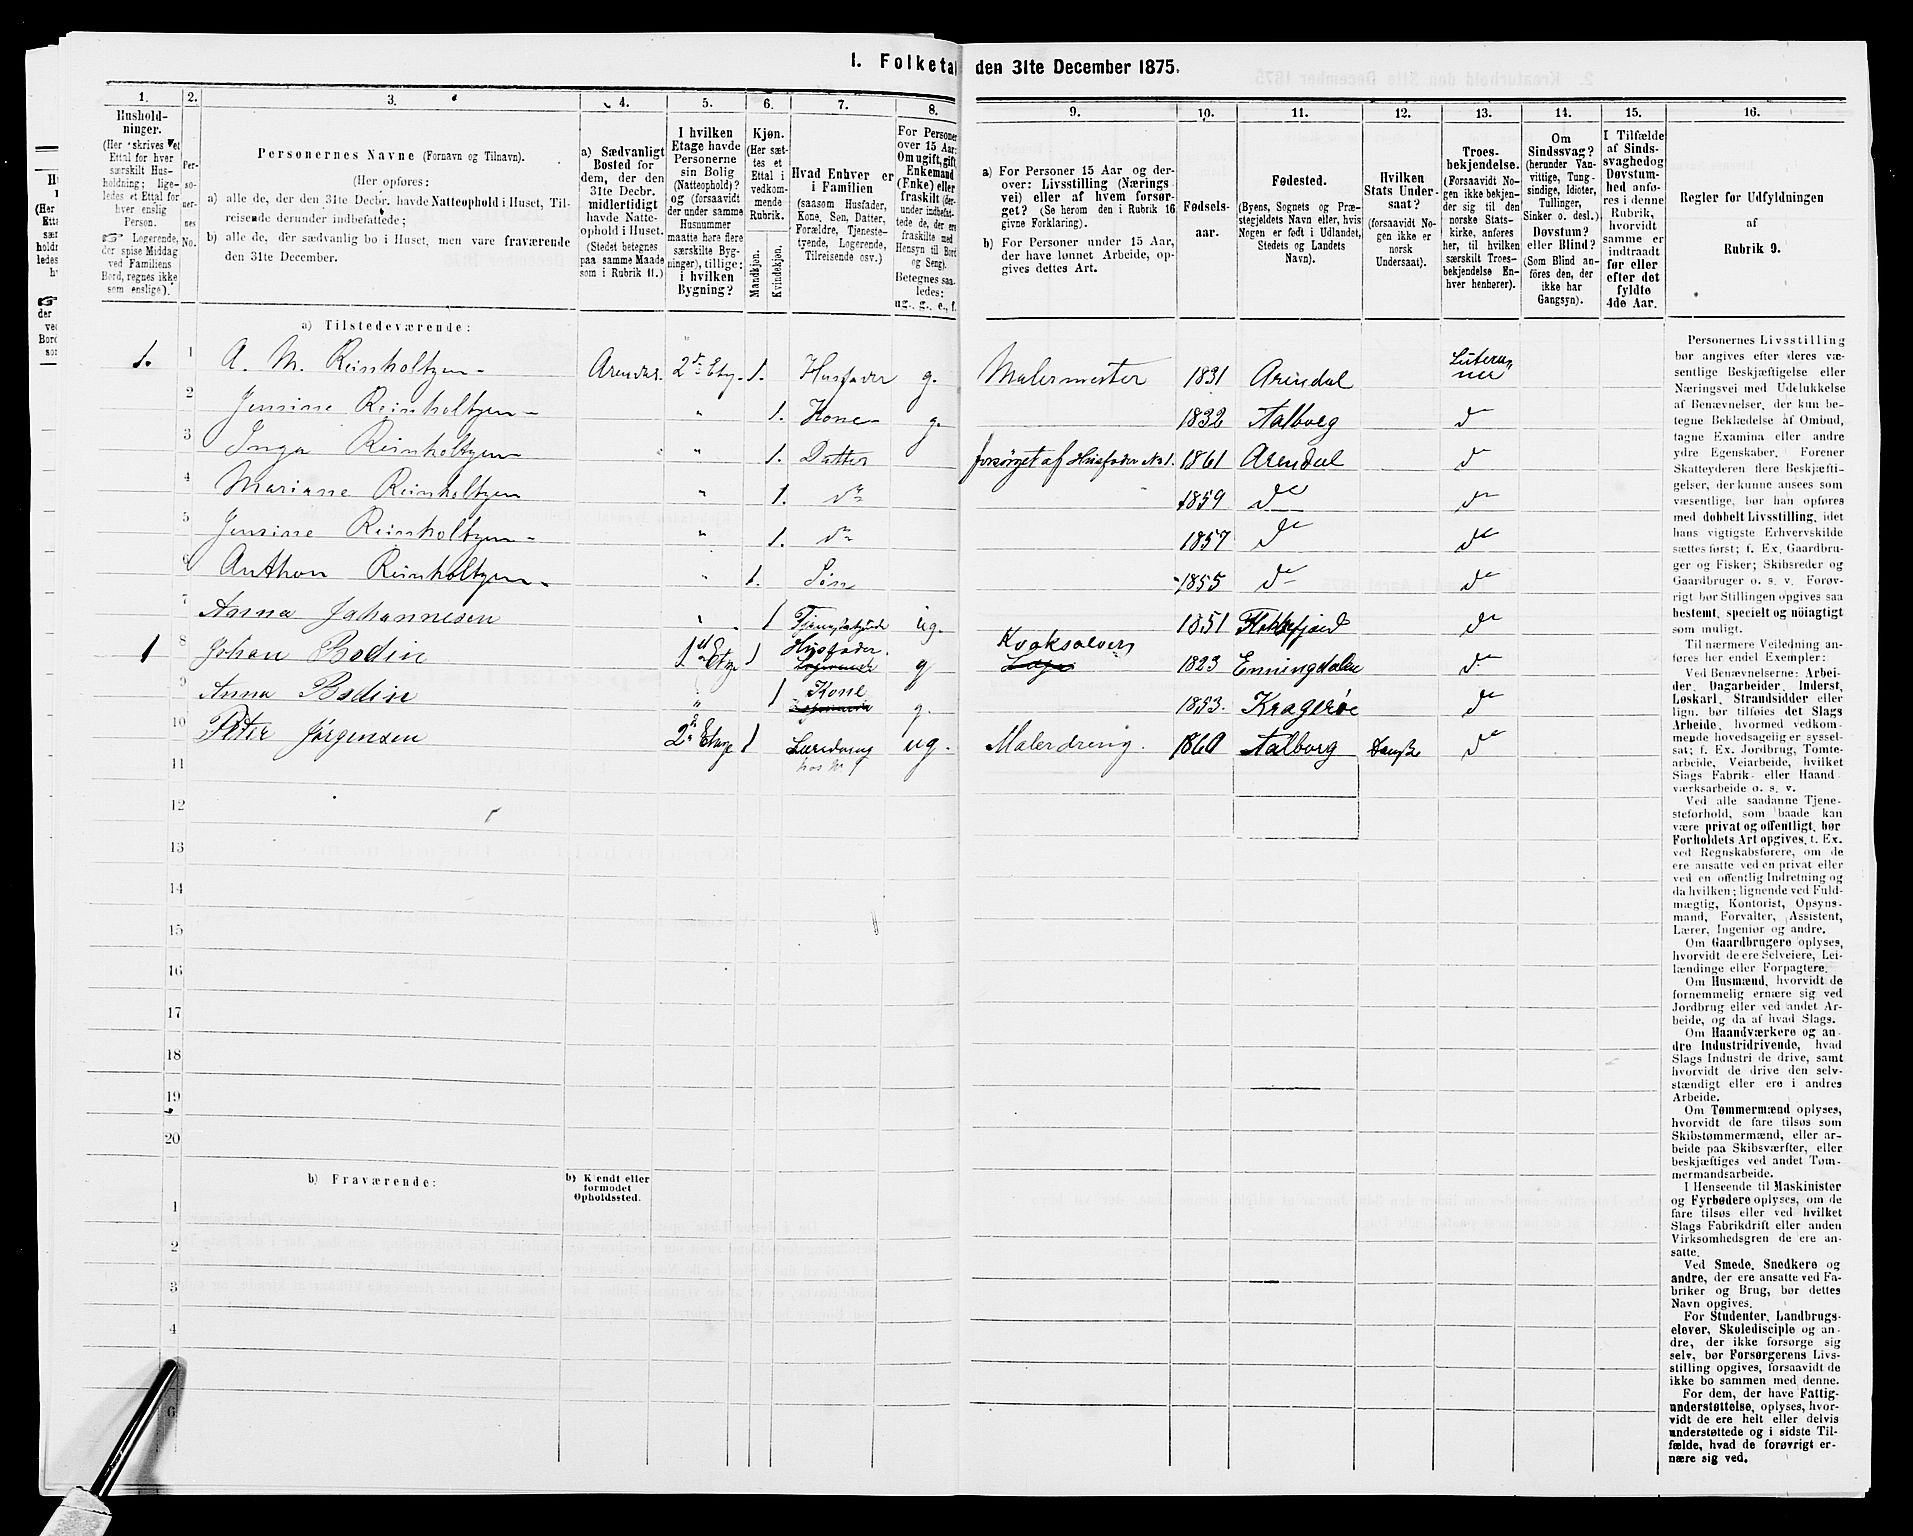 1. Folketal den 31te December 1875.
1.
Hushold-
ninger.
(Her skrives et
Ettal for hver
særskilt Hus-
holdning; lige-
ledes et Ettal for
hver enslig
Person.
☞ Logerende,
der spise Middag
ved Familiens
Bord, regnes ikke
som enslige).
2.
Per-
so-
ner-
nes
No.
3.
Personernes Navne (Fornavn og Tilnavn).
(Her opføres:
a) alle de, der den 31te Decbr. havde Natteophold i Huset, Til-
reisende derunder indbefattede;
b) alle de, der sædvanlig bo i Huset, men vare fraværende
den 31te December.
4.
a) Sædvanligt
Bosted for
dem, der den
31te Decbr.
midlertidigt
havde Natte-
ophold i Huset.
(Stedet betegnes
paa samme Maade
som i Rubrik 11.)
5.
I hvilken
Etage havde
Personerne
sin Bolig
(Natteophold)?
og (forsaavidt
der under samme
Husnummer
maatte høre flere
særskilte Byg-
ninger), tillige:
i hvilken
Bygning?
6.
Kjøn.
(Her sæt-
tes et
Ettal i
vedkom-
mende
Rubrik.
Mandkjøn.
Kvindekjøn.
7.
Hvad Enhver er
i Familien
(saasom Husfader,
Kone, Søn, Datter,
Forældre, Tjeneste-
tyende, Logerende,
Tilreisende osv.)
8.
For Personer
over 15 Aar:
Om ugift, gift,
Enkemand
(Enke) eller
fraskilt (der-
under indbefat-
tede de, der ere
fraskilte med
Hensyn til Bord
og Seng).
Betegnes saa-
ledes:
ug., g., e., f.
9.
a) For Personer 15 Aar og der-
over: Livsstilling (Nærings-
vei) eller af hvem forsør-
get? (Se herom den i Rubrik 16
givne Forklaring).
b) For Personer under 15 Aar,
der have lønnet Arbeide, op-
gives dettes Art.
10.
Fødsels-
aar.
11.
Fødested.
(Byens, Sognets og Præ-
stegjeldets Navn eller, hvis
Nogen er født i Udlandet,
Stedets og Landets
Navn).
12.
Hvilken
Stats Under-
saat?
(forsaavidt No-
gen ikke er
norsk
Undersaat).
13.
Troes-
bekjendelse.
(Forsaavidt No-
gen ikke bekjen-
der sig til den
norske Stats-
kirke, anføres
her, til hvilken
særskilt Troes-
bekjendelse En-
hver henhører).
14.
Om
Sindssvag?
(herunder Van-
vittige, Tung-
sindige, Idioter,
Tullinger,
Sinker o. desl.)
Døvstum?
eller Blind?
(Som Blind an-
føres den, der
ikke har
Gangsyn).
15.
I Tilfælde
af Sinds-
svaghed og
Døvstum-
hed anfø-
res i denne
Rubrik,
hvorvidt
samme er
indtraadt
før eller
efter det
fyldte
4de Aar.
16.
Regler for Udfyldningen
af
Rubrik 9.
a) Tilstedeværende:
1. 1 A. M. Reinholtzen – Arendal. 2den Etg. 1. Husfader g. Malermester 1831 Arendal Luteraner
2 Jensine Reinholtzen – " 1. Kone g. 1832 Aalborg do
3 Inga Reinholtzen " 1. Datter forsørget af Husfader No 1. 1861 Arendal do
4 Mariane Reinholtzen " 1. do 1859 do do
5 Jensine Reinholtzen – " 1. do 1857 do do
6 Anthon Reinholtzen – " 1. Søn 1855 do do
7 Anna Johannesen " 1 Tjenestetyende ug. 1851 do
1 8 Johan Bodin 1ste Etage 1 Husfader. Logerende g Kvaksalveri 1823 Enningdalen do
9 Anna Bodin " 1 Kone Logerende g. 1833. Kragerøe do
10 Peter Jørgensen 2den Etage 1 Læredreng hos No 1 ug. Malerdreng 1860 Aalborg Danske do
11
12
13
14
15
16
17
18
19
20
b) Fraværende:
b) Kjendt eller
formodet
Opholdssted.
1
2
3
4
6
Personernes Livsstilling
bør angives efter deres væ-
sentlige Beskjæftigelse eller
Næringsvei med Udelukkelse
af Benævnelser, der kun be-
tegne Beklædelse af Ombud,
tagne Examina eller andre
ydre Egenskaber. Forener
Skatteyderen flere Beskjæfti-
gelser, der kunne ansees som
væsentlige, bør han opføres
med dobbelt Livsstilling, idet
hans vigtigste Erhvervskilde
sættes først; f. Ex. Gaardbru-
ger og Fisker; Skibsreder og
Gaardbruger o. s. v. Forøv-
rigt bør Stillingen opgives saa
bestemt, specielt og nöiagtigt
som muligt.
Til nærmere Veiledning an-
føres her endel Exempler:
Ved Benævnelserne: Arbei-
der, Dagarbeider, Inderst,
Løskarl, Strandsidder eller
lign. bør tilføies det Slags
Arbeide, hvormed vedkom-
mende hovedsagelig er syssel-
sat; f. Ex. Jordbrug, Tomte-
arbeide, Veiarbeide, hvilket
Slags Fabrik- eller Haand-
værksarbeide o. s. v.
Ved alle saadanne Tjene-
steforhold, som baade kan
være privat og offentligt, bør
Forholdets Art opgives, f. Ex.
ved Regnskabsførere, om de
ere ansatte ved en privat eller
ved en offentlig Indretning og
da hvilken; lignende ved Fuld-
mægtig, Kontorist, Opsyns-
mand, Forvalter, Assistent,
Lærer, Ingeniør og andre.
Om Gaardbrugere oplyses,
hvorvidt de ere Selveiere, Lei-
lændinge eller Forpagtere.
Om Husmænd, hvorvidt de
fornemmelig ernære sig ved
Jordbrug eller ved andet Ar-
beide, og da af hvad Slags.
Om Haandværkere og an-
dre Industridrivende, hvad
Slags Industri de drive, samt
hvorvidt de drive den selv-
stændigt eller ere i andres
Arbeide.
Om Tømmermænd oplyses,
hvorvidt de fare tilsøs som
Skibstømmermænd, eller ar-
beide paa Skibsværfter, eller
beskjæftiges ved andet Tøm-
mermandsarbeide.
I Henseende til Maskinister
og Fyrbødere oplyses, om de
fare tilsøs eller ved hvilket
Slags Fabrikdrift eller anden
Virksomhedsgren de ere an-
satte.
Ved Smede, Snedkere og
andre, der ere ansatte ved Fa-
briker og Brug, bør dettes
Navn opgives.
For Studenter, Landbrugs-
elever, Skoledisciple og an-
dre, der ikke forsørge sig
selv, bør Forsørgerens Livs-
stilling opgives, forsaavidt de
ikke bo sammen med denne.
For dem, der have Fattig-
understøttelse, oplyses, hvor-
vidt de ere helt eller delvis
understøttede og i sidste Til-
fælde, hvad de forøvrigt er-
nære sig ved.